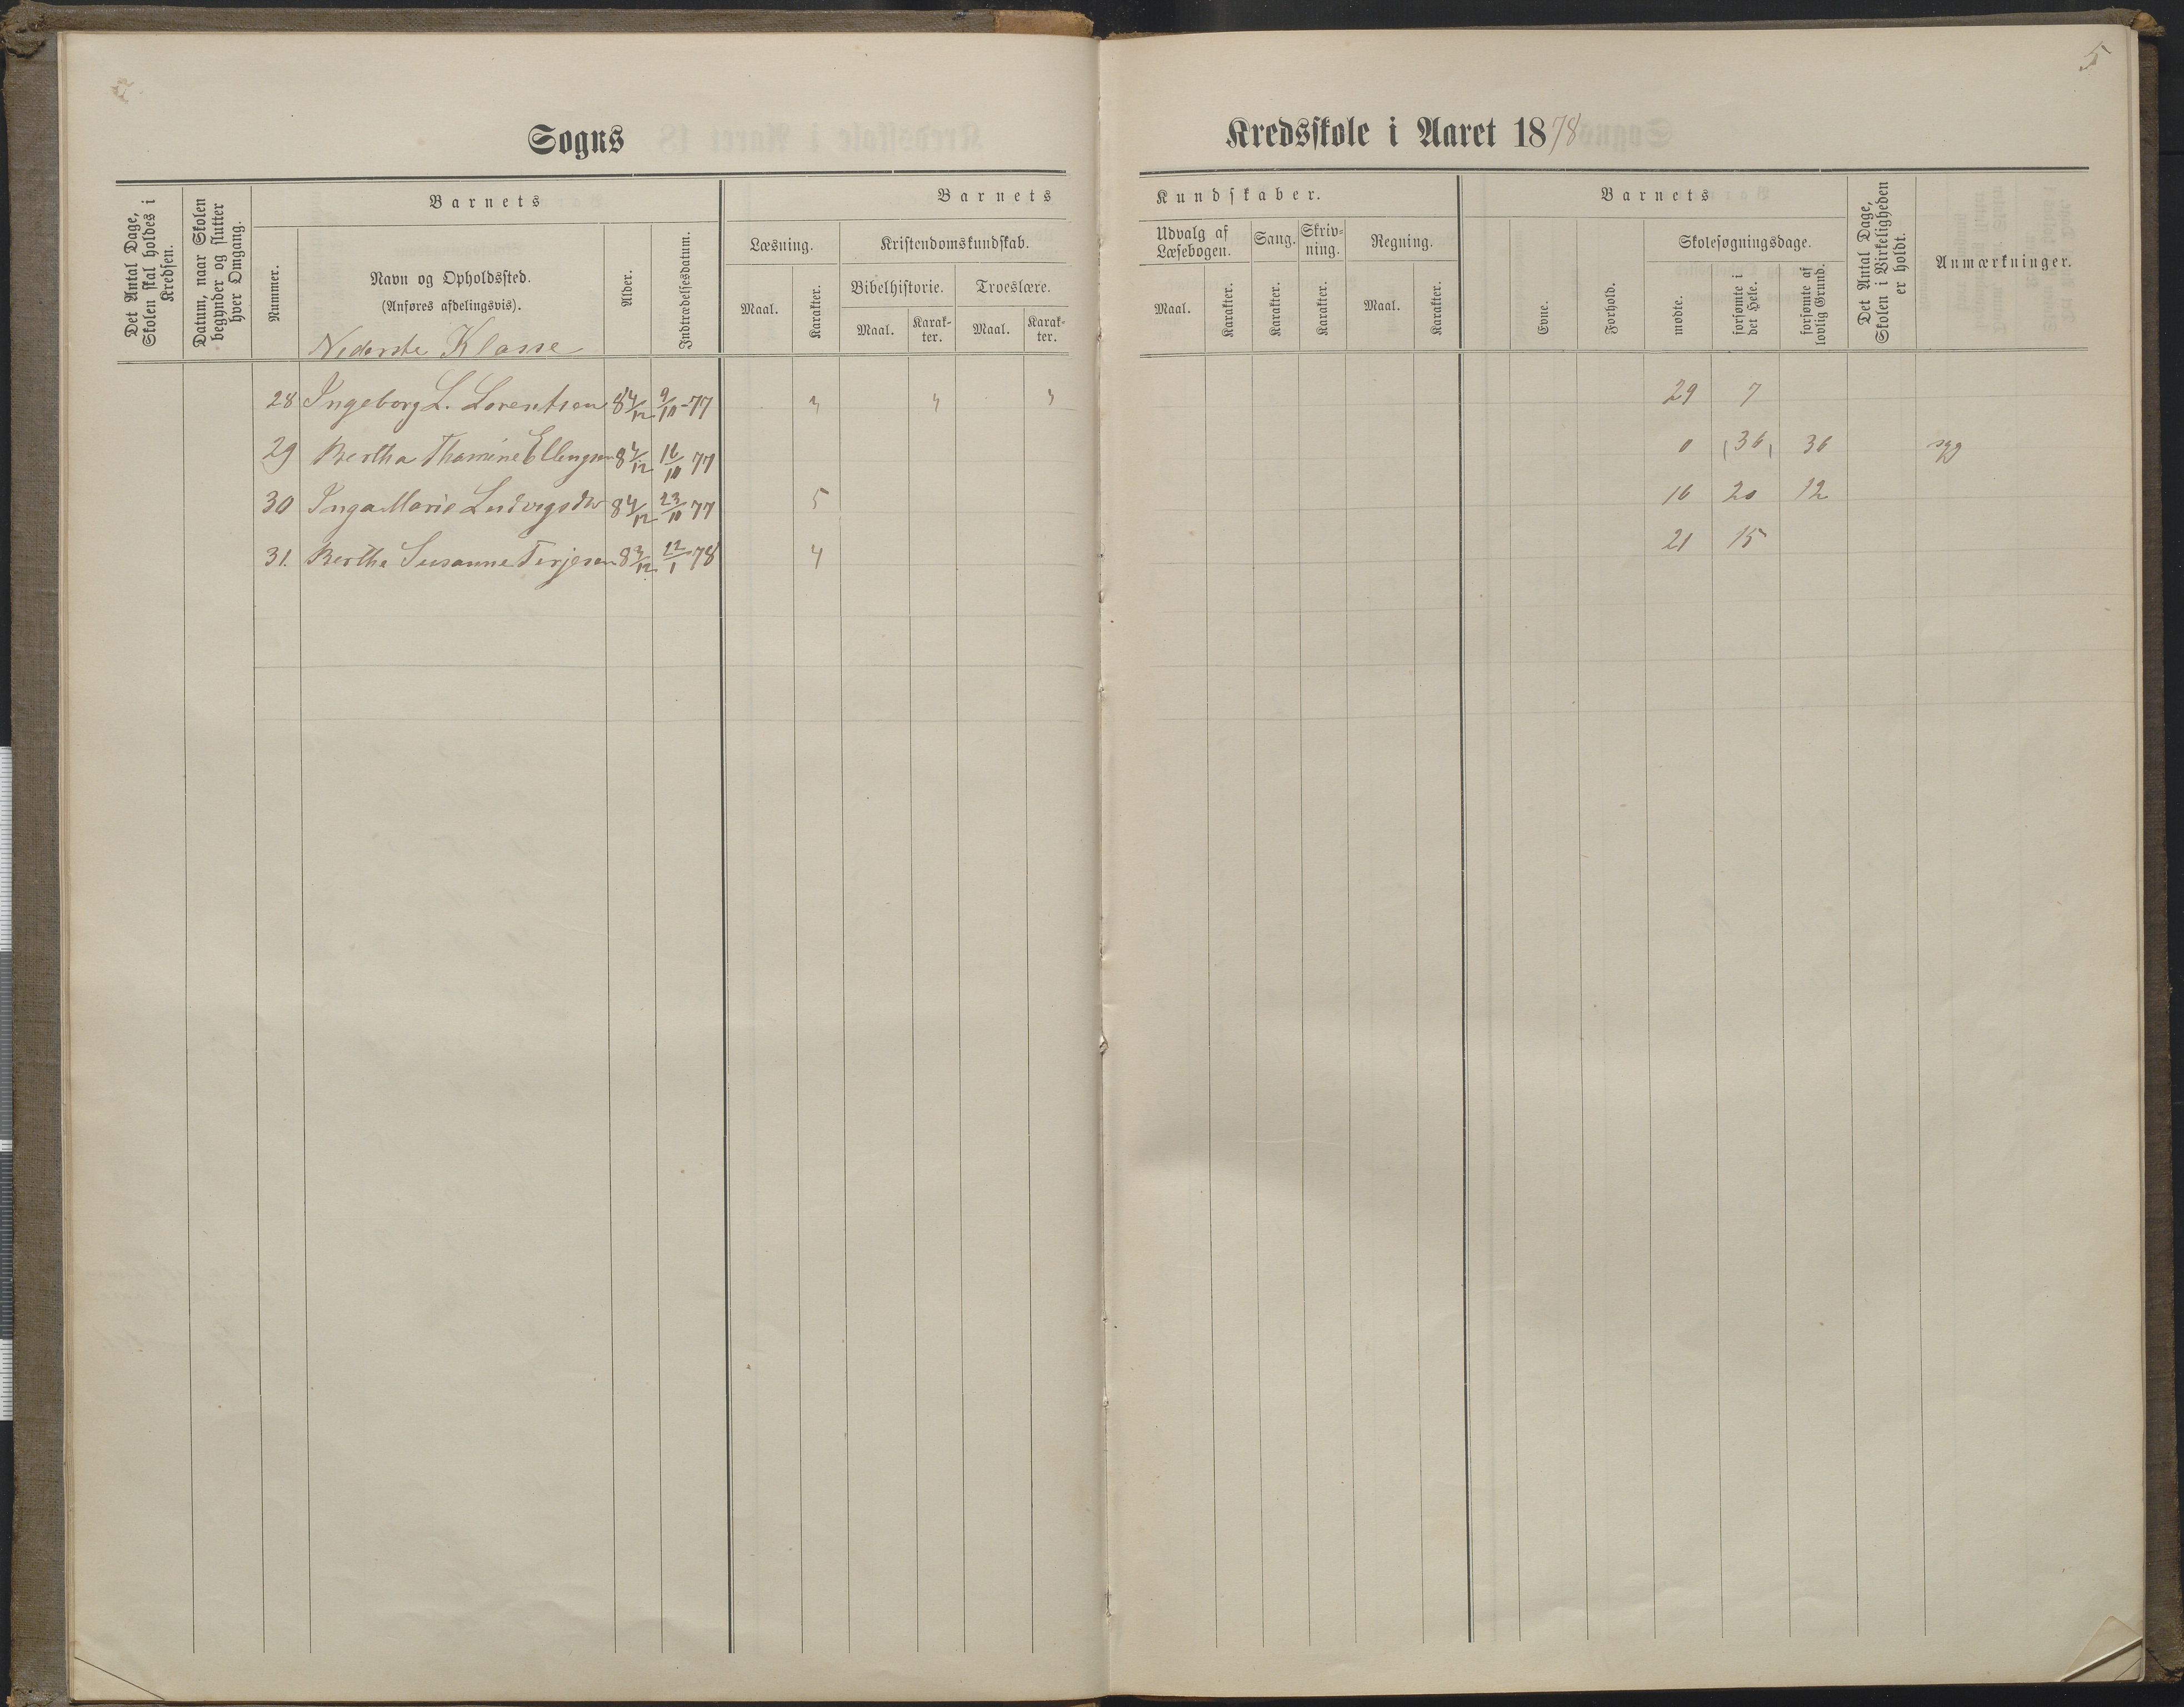 5
Sogns
Kredsskole i Aaret 1878
Det Antal Dage, Skolen skal holdes i Kredsen.
Datum, naar Skolen begynder og slutter hver Omgang.
Barnets
Nummer.
Navn og Opholdssted.
(Anføres afdelingsvis).
Nederste Klasse
Alder.
Indtrædelsesdatum.
Barnets
Læsning.
Maal.
Karakter.
Kristendomskundskab.
Bibelhistorie.
Troeslære.
Maal.
Karak-
ter.
Maal.
Karak-
ter.
Kundskaber.
Udvalg af
Læsebogen.
Maal.
Karakter.
Sang.
Karakter.
Skriv-
ning.
Karakter.
Regning.
Maal.
Karakter.
Barnets
Evne.
Forhold.
Skolesøgningsdage.
mødte.
forsømte i det Hele.
forsømte af lovlig Grund.
Det Antal Dage, Skolen i Virkeligheden er holdt.
Anmærkninger.
28 Ingeborg L. Lorentsen 8 4/12 9/10-77 29 7
29 Bertha Thamine Ellingsen 8 4/12 16/10 77 0 (36) 36 syg
30 Inga Marie Ludvigsdtr 8 4/12 23/10 77 5 16 20 12
31. Berthe Susanne Terjesen 8 3/12 22/1 78 4 21 15